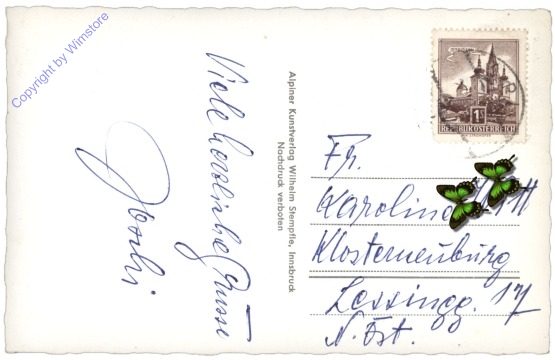 Copyright by Wimstore
Viele herzliche Grüsse
Alpiner Kunstverlag Wilhelm Stempfle, Innsbruck
Nachdruck verboten
1S
REPUBLIK ÖSTERREICH
Fr.
Karolina
Klosterneuburg
Lessingg. 17
N. Öst.